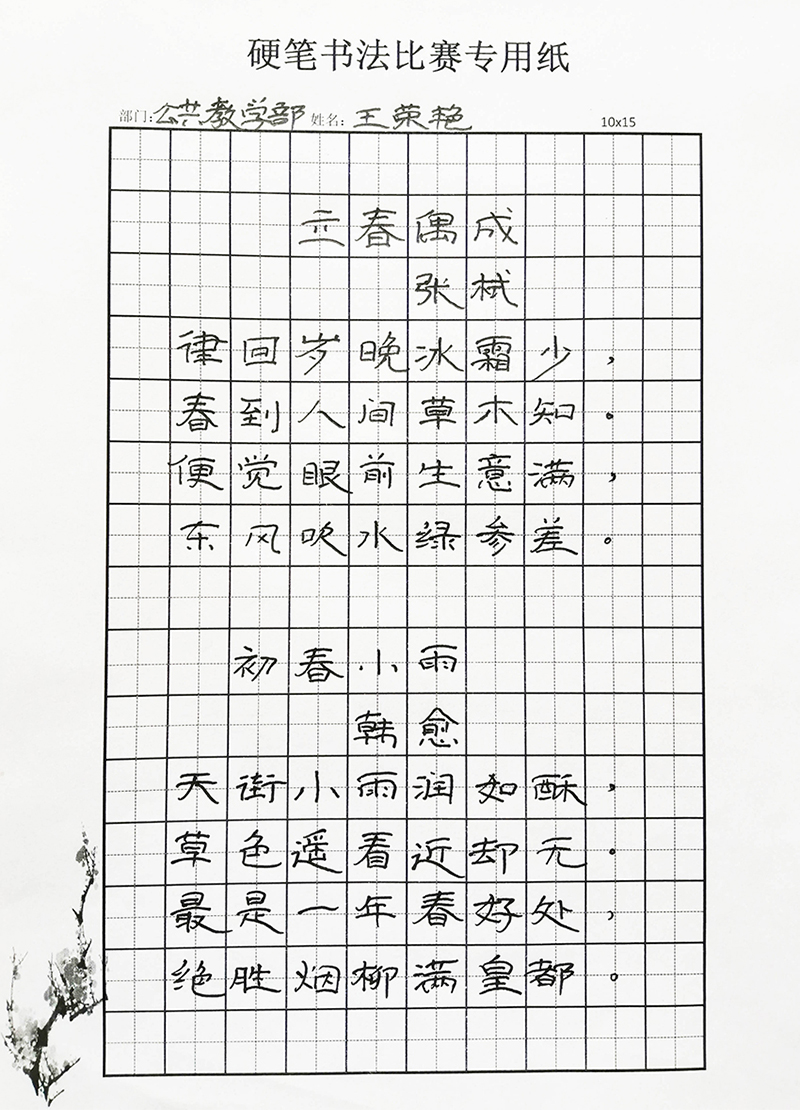 硬笔书法比赛专用纸
部门:公共教学部 姓名:王荣艳 10x15
立春偶成
张栻
律回岁晚冰霜少，
春到人间草木知。
便觉眼前生意满，
东风吹水绿参差。
初春小雨
韩愈
天街小雨润如酥，
草色遥看近却无。
最是一年春好处，
绝胜烟柳满皇都。